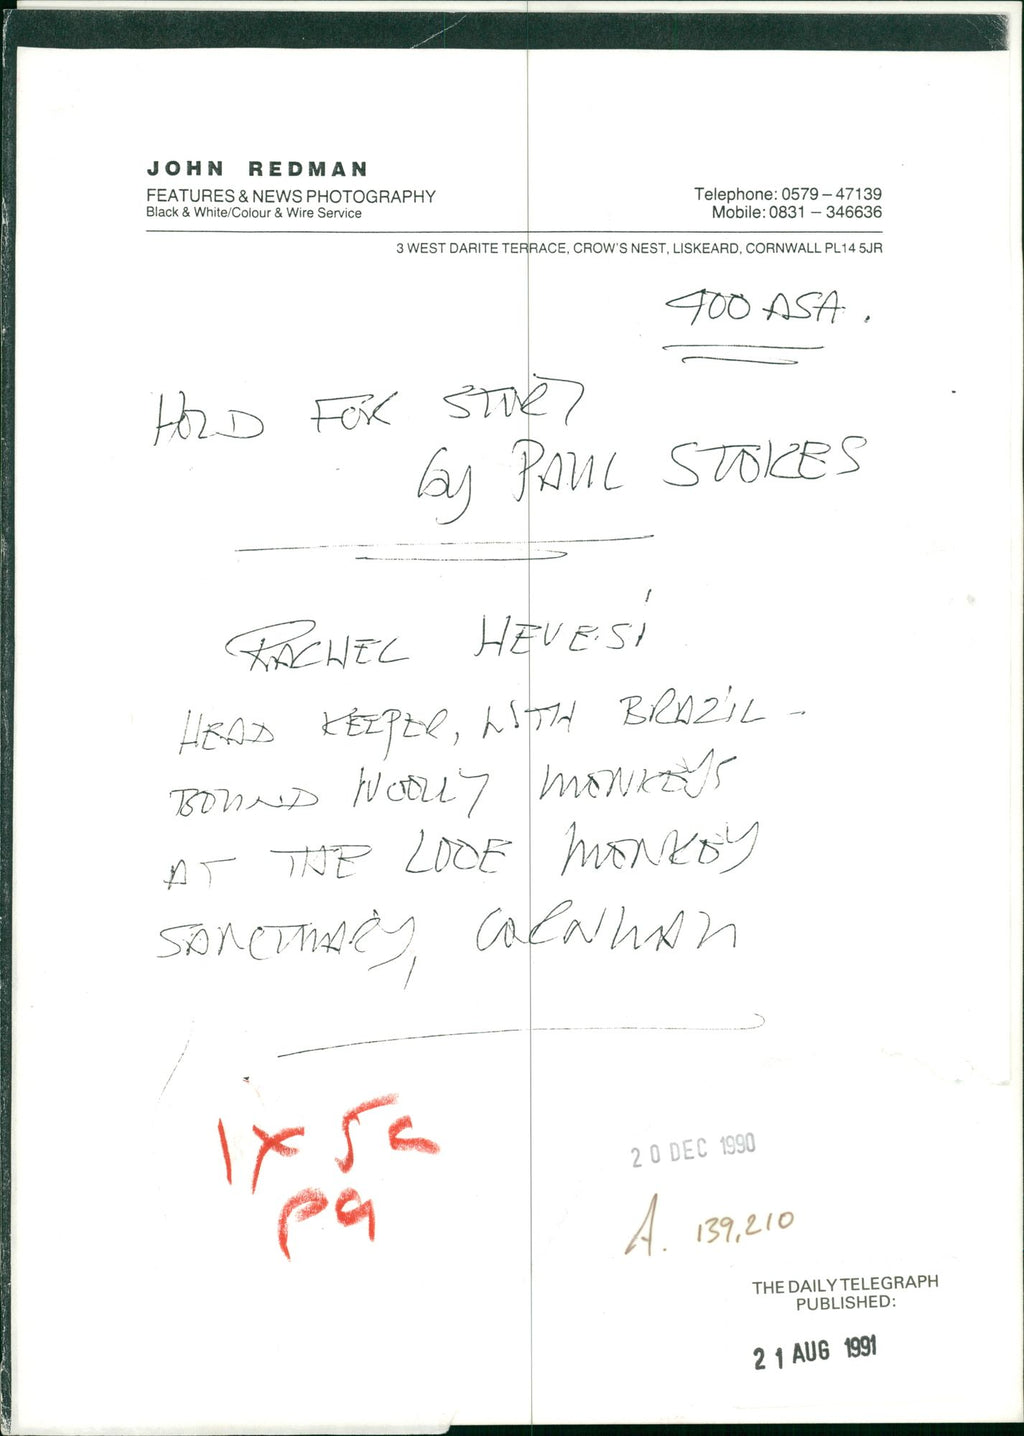 JOHN REDMAN
FEATURES & NEWS PHOTOGRAPHY
Black & White/Colour & Wire Service
Telephone: 0579 – 47139
Mobile: 0831 – 346636
3 WEST DARITE TERRACE, CROW'S NEST, LISKEARD, CORNWALL PL14 5JR
400 ASA.
HOLD FOR STORY
by PAUL STOKES
RACHEL HEVESI
HEAD KEEPER, WITH BRAZIL -
BOUND WOOLLY MONKEYS
AT THE LOOE MONKEY
SANCTUARY, CORNWALL
1 x 5c
p9
20 DEC 1990
A. 139,210
THE DAILY TELEGRAPH
PUBLISHED:
21 AUG 1991